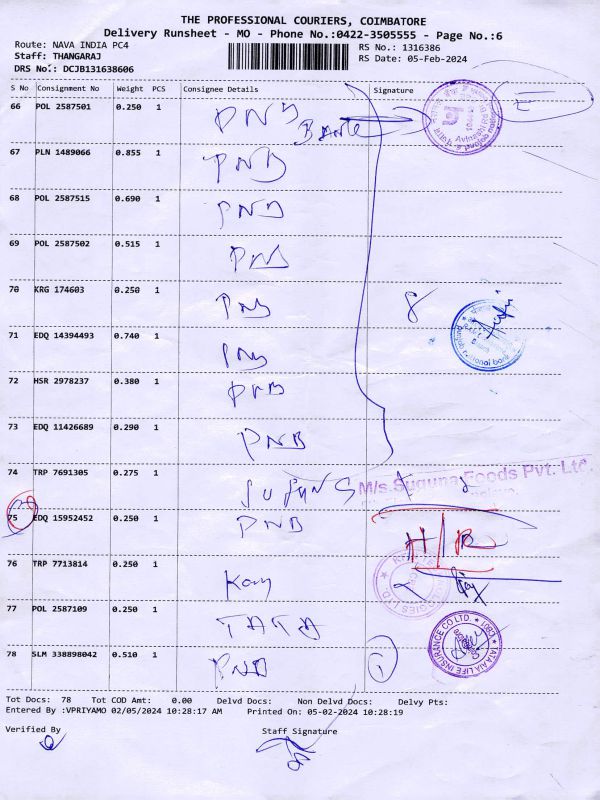 THE PROFESSIONAL COURIERS, COIMBATORE
Delivery Runsheet - MO - Phone No.:0422-3505555 - Page No.:6
Route: NAVA INDIA PC4
RS No.: 1316386
Staff: THANGARAJ
RS Date: 05-Feb-2024
DRS No.: DCJB131638606
S No Consignment No Weight PCS Consignee Details Signature
66 POL 2587501 0.250 1 PNB Bank
67 PLN 1489066 0.855 1 PNB
68 POL 2587515 0.690 1 PNB
69 POL 2587502 0.515 1 PNB
70 KRG 174603 0.250 1 PNB 8
71 EDQ 14394493 0.740 1 PNB
72 HSR 2978237 0.380 1 PNB
73 EDQ 11426689 0.290 1 PNB
74 TRP 7691305 0.275 1 M/s.Suguna Foods Pvt. Ltd.
75 EDQ 15952452 0.250 1 PNB
76 TRP 7713814 0.250 1
77 POL 2587109 0.250 1 TATA
TATA AIA LIFE INSURANCE CO LTD.
78 SLM 338898042 0.510 1 PNB 1
Tot Docs: 78 Tot COD Amt: 0.00 Delvd Docs: Non Delvd Docs: Delvy Pts:
Entered By :VPRIYAMO 02/05/2024 10:28:17 AM Printed On: 05-02-2024 10:28:19
Verified By Staff Signature